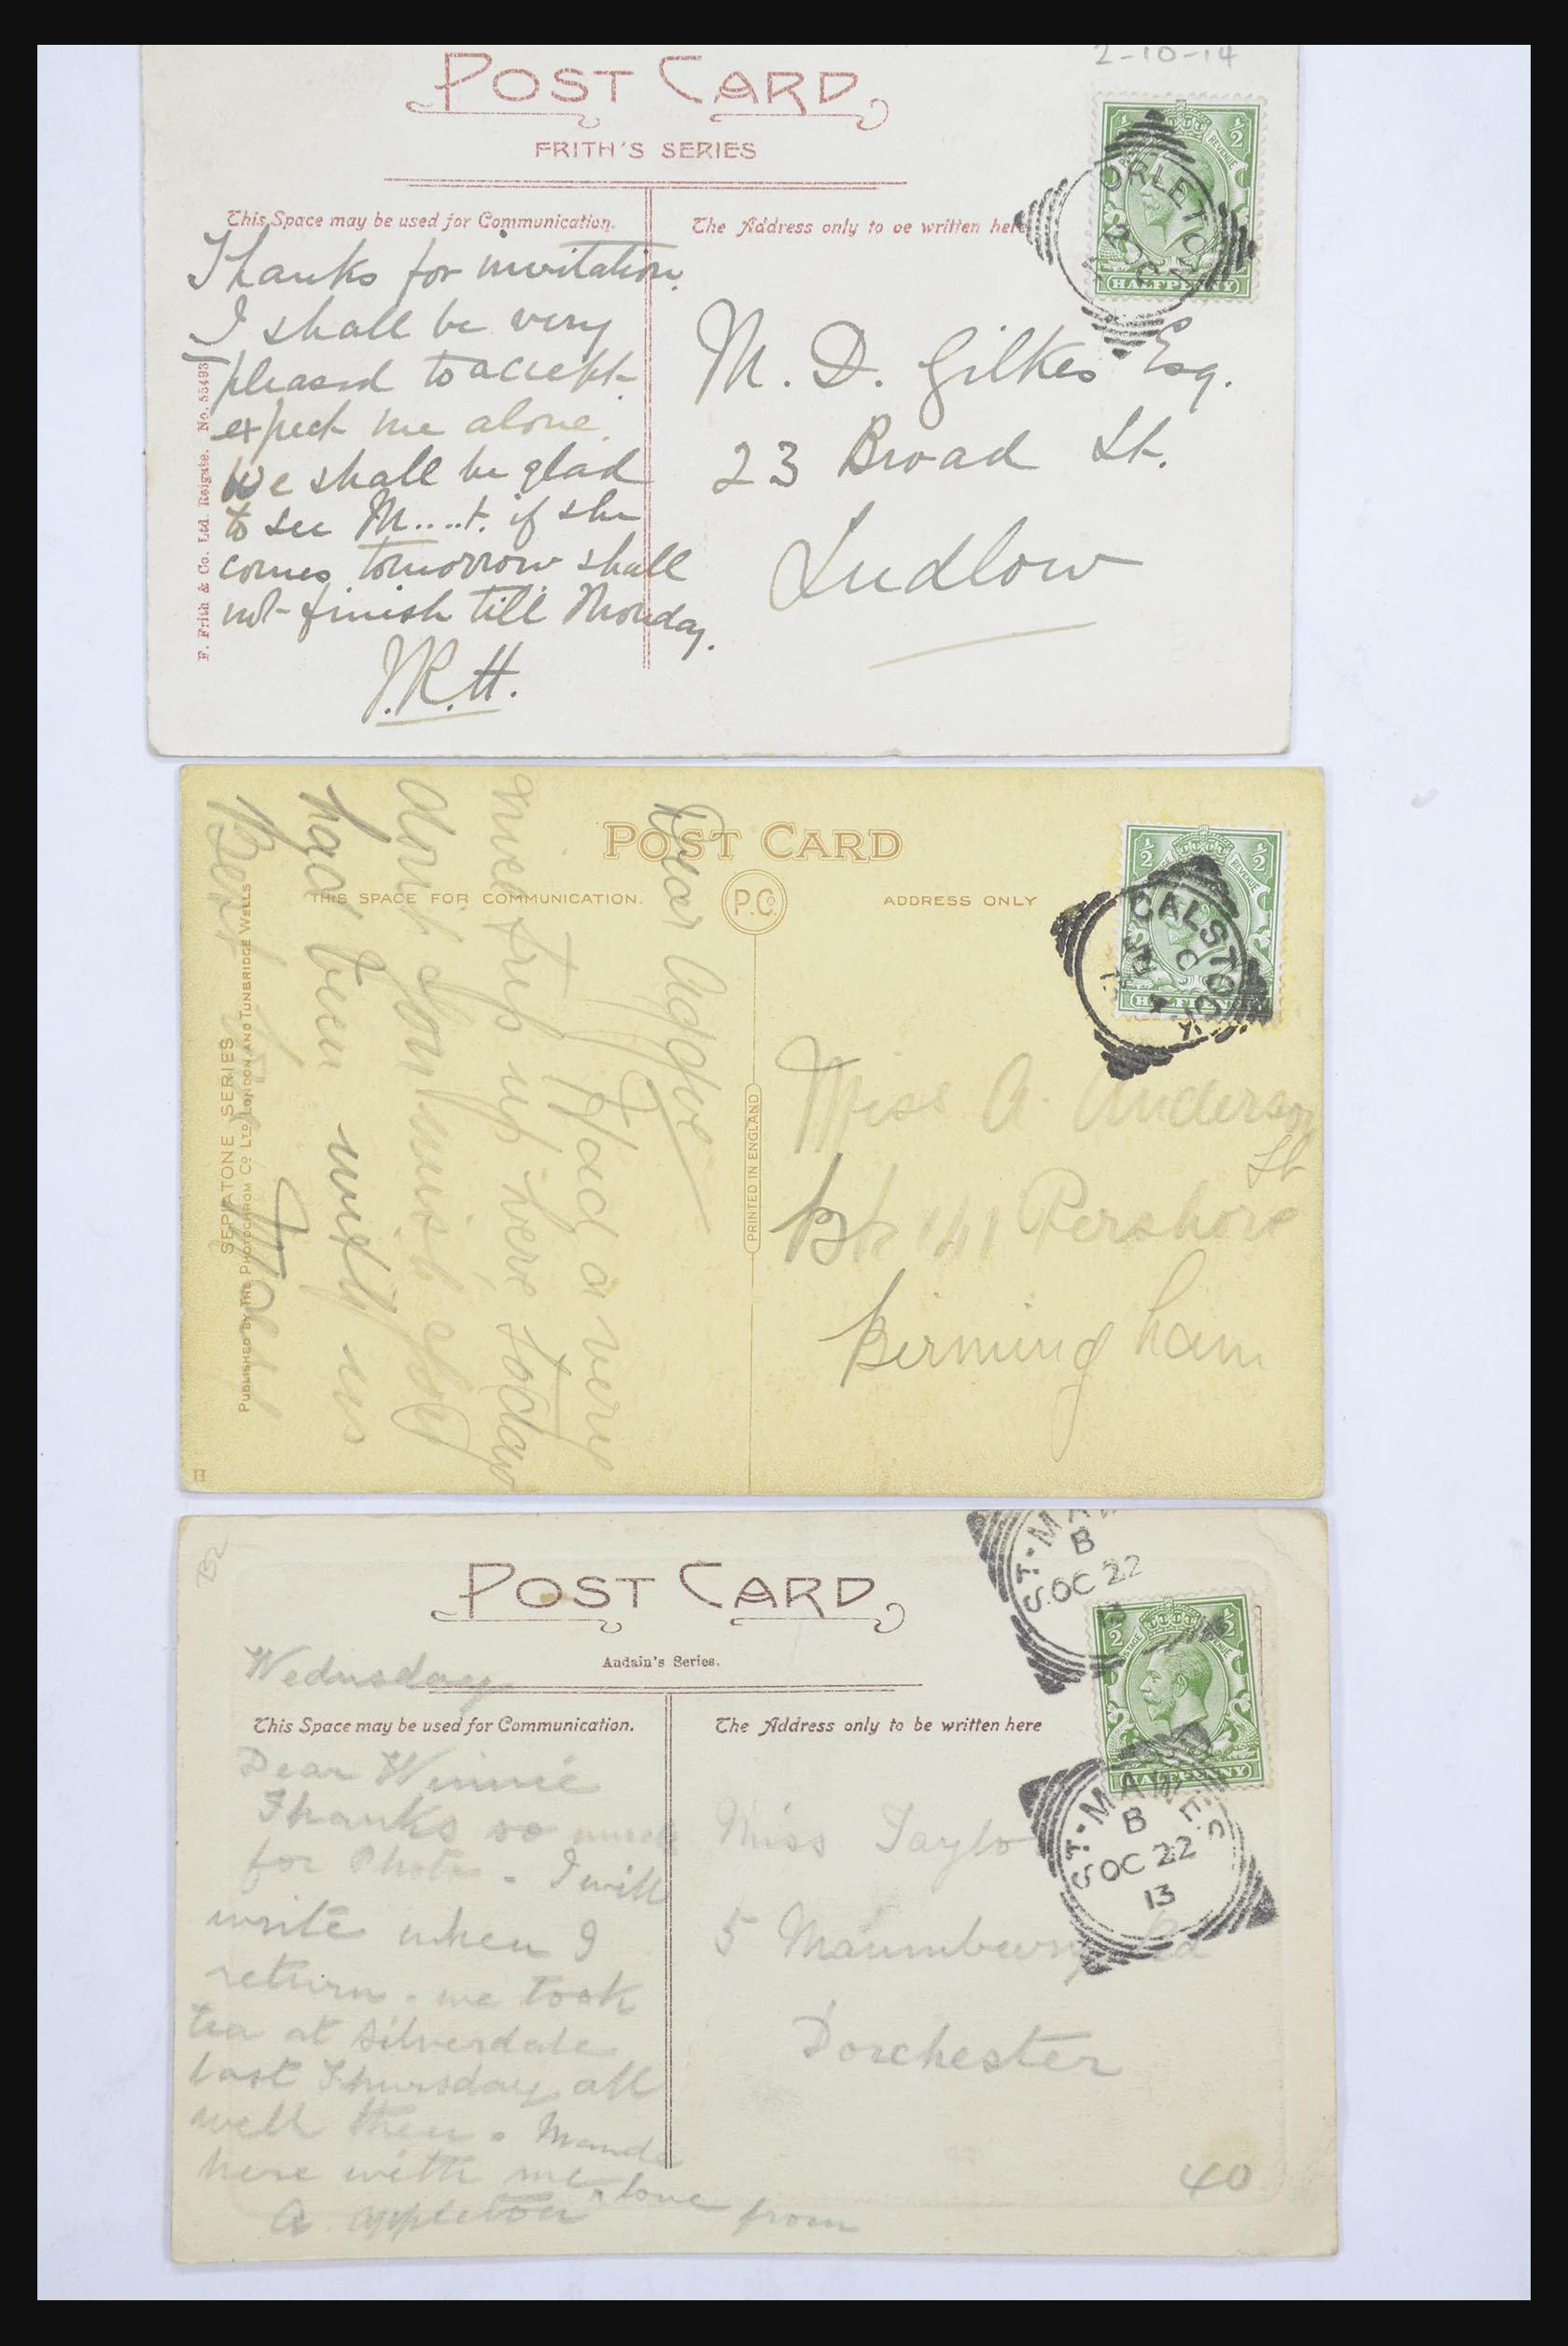 2-10-14
POST CARD
FRITH'S SERIES
This Space may be used for Communication.
The Address only to be written here
½ ½
REVENUE
HALFPENNY
ORLETON
OC
Thanks for invitation.
I shall be very
pleased to accept.
expect me alone.
We shall be glad
to see M.....t. if she
comes tomorrow shall
not finish till Monday.
J.R.H.
F. Frith & Co. Ltd. Reigate. No. 55493
M. D. Gilkes Esq.
23 Broad St.
Ludlow
POST CARD
THIS SPACE FOR COMMUNICATION.
P.Co.
ADDRESS ONLY
½ ½
REVENUE
HALFPENNY
CALSTOCK
Dear Aggie
Had a very
nice trip up here today
don't you wish you
had been with us
Best
SEPIATONE SERIES
PUBLISHED BY THE PHOTOCHROM CO LTD LONDON AND TUNBRIDGE WELLS
PRINTED IN ENGLAND
H
Miss A. Anderson
141 Pershore
St
Birmingham
POST CARD
Andain's Series.
This Space may be used for Communication.
The Address only to be written here
ST. MAW
B
OC 22
13
½ ½
POSTAGE REVENUE
HALFPENNY
ST. MAWES
B
OC 22
13
Wednesday
Dear Winnie
Thanks so much
for Photo - I will
write when I
return. we took
tea at Silverdale
last Thursday all
well then. Manda
here with me. love from
A. Appleton
Miss Taylo
5 Maumbury Rd
Dorchester
40